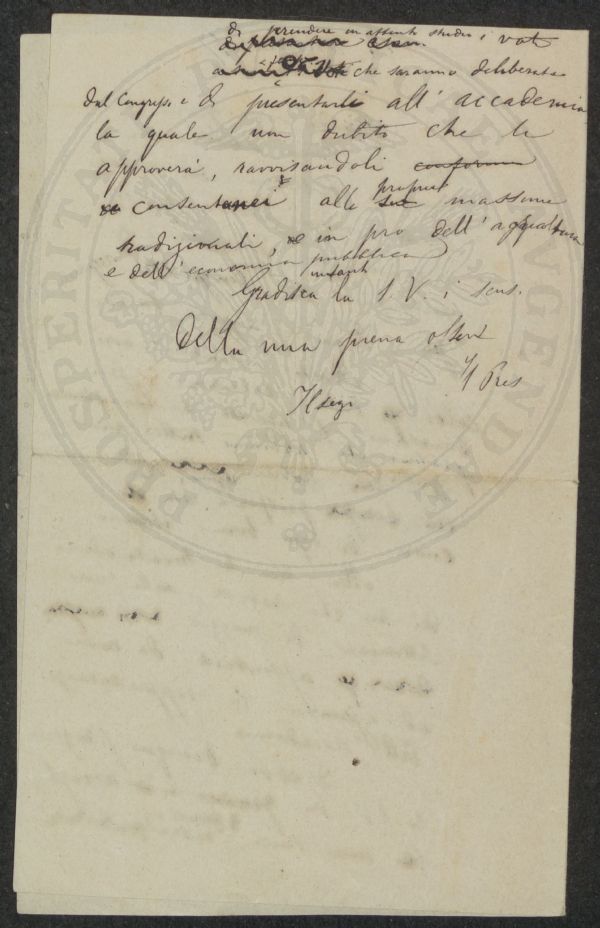 di prendere in attento studio i voti
che saranno deliberati
dal Congresso e di presentarli all' accademia
la quale non dubito che le
approverà, ravvisandoli conformi
consentanei alle sue proprie massime
tradizionali, e in pro dell' agricoltura
e dell' economia pubblica
Gradisca la S. V. i sens.
Della mia piena osserv
Il Pres
Il segr
PROSPERITATI AUGENDAE